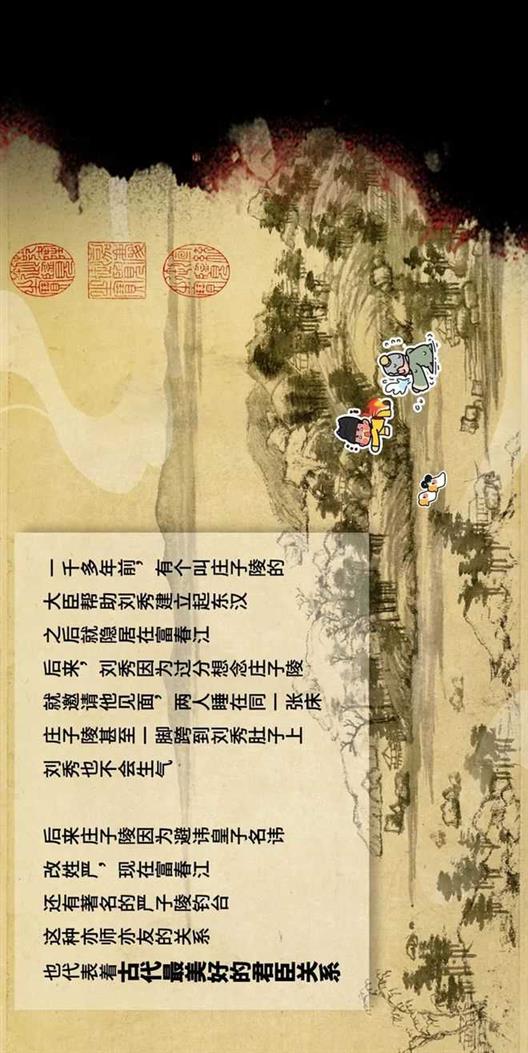 一千多年前，有个叫庄子陵的
大臣帮助刘秀建立起东汉
之后就隐居在富春江
后来，刘秀因为过分想念庄子陵
就邀请他见面，两人睡在同一张床
庄子陵甚至一脚跨到刘秀肚子上
刘秀也不会生气
后来庄子陵因为避讳皇子名讳
改姓严，现在富春江
还有著名的严子陵钓台
这种亦师亦友的关系
也代表着古代最美好的君臣关系